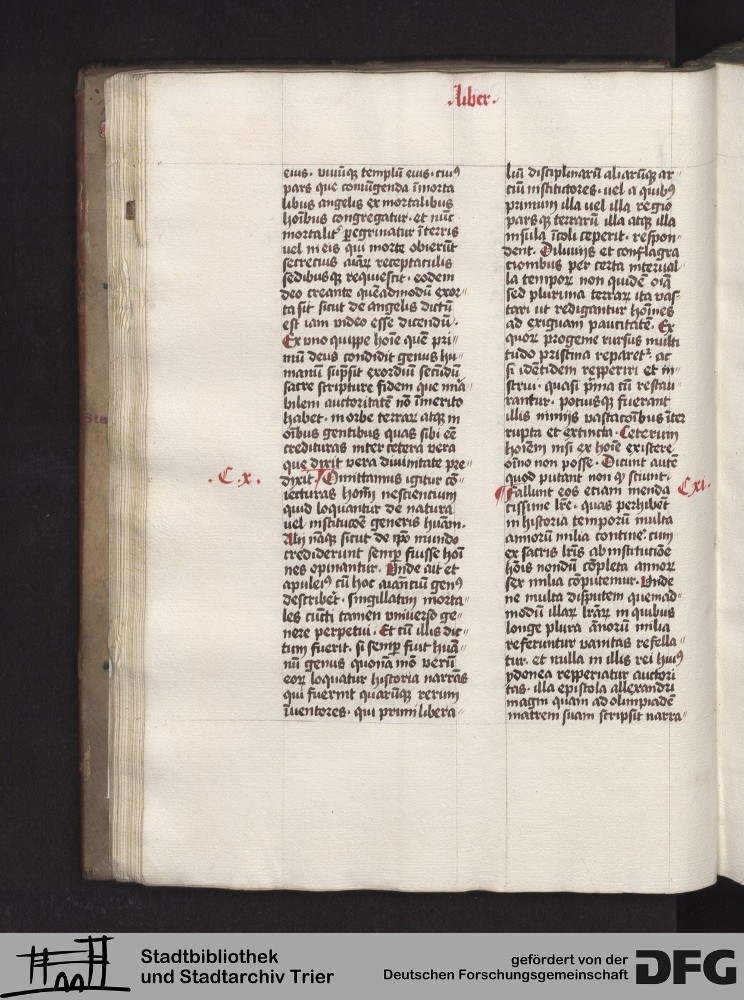 .liber.
eius. viuūqꝫ templū eius. cuiꝰ
pars que coniūgenda īmorta
libus angelis ex mortalibus
hoībus congregatur. et nūc
mortalit᷒ ꝑegrinatur īterris
vel in eis qui morte obierūt
secrecius aīaꝝ receptaculis
sedibusqꝫ requiescit. eodem
deo creante quēadmodū exor〃
ta sit sicut de angelis dictū
est iam video esse dicendū.
Ex vno quippe hoīe quē pri〃
mū deus condidit genus hu〃
manū sūpsit exordiū secūdū
sacre scripture fidem que mīa〃
bilem auctoritatē nō īmerito
habet. in orbe terraꝝ atqꝫ in
oībus gentibus quas sibi eē
credituras inter cetera vera
que dixit vera diuinitate pre〃
.C. x. dixit. Omittamus igitur cō〃
iecturas hoīm nescientium
quid loquantur de natura
vel institucōe generis hūani.
Alij nāqꝫ sicut de ip̄o mundo
crediderunt semꝑ fuisse hoī
nes opinantur. Vnde ait et
apuleiꝰ cū hoc aīantiū genꝰ
describet. singillatim morta〃
les cūcti tamen vniuerso ge〃
nere perpetui. Et cū illis dic〃
tum fuerit. si semꝑ fuit hūa〃
nū genus quonā mō verū
eoꝝ loquatur historia narrās
qui fuerint quarūqꝫ rerum
īuentores. qui primi libera〃
liū disciplinarū aliarūqꝫ ar〃
ciū institutores. vel a quibꝰ
primum illa vel illa regio
parsqꝫ terrarū illa atqꝫ illa
insula īcoli ceperit. respon〃
dent. Diluuijs et conflagra
cionibus per certa interual〃
la tempoꝝ non quidē oīa
sed plurima terraꝝ ita vas〃
tari vt redigantur hoīnes
ad exiguam paucitatē. Ex
quoꝝ progenie rursus multi
tudo pristina reparet᷒. ac
si idētidem repperiri et in〃
strui. quasi pⁱma cū restau〃
rantur. potiusqꝫ fuerant
illis nimijs vastacoībus īter
rupta et extincta. Ceterum
hoīem nisi ex hoīe existere
oīno non posse. Dicunt autē
quod putant non ꝙ sciunt.
¶Fallunt eos etiam menda Cxi.
cissime lr̄e. quas perhibēt
in historia temporū multa
annorū milia contineꝛ. cum
ex sacris lr̄is ab institutiōe
hoīs nondū cōpleta annoꝝ
sex milia cōputemur. Vnde
ne multa disputem quemad〃
modū illaꝝ lr̄aꝝ in quibus
longe plura ānorū milia
referuntur vanitas refella〃
tur. et nulla in illis rei huiꝰ
ydonea repperiatur auctori
tas. illa epistola allexandri
magni quam ad olimpiadē
matrem suam scripsit narra〃
Stadtbibliothek
und Stadtarchiv Trier
gefördert von der
Deutschen Forschungsgemeinschaft
DFG